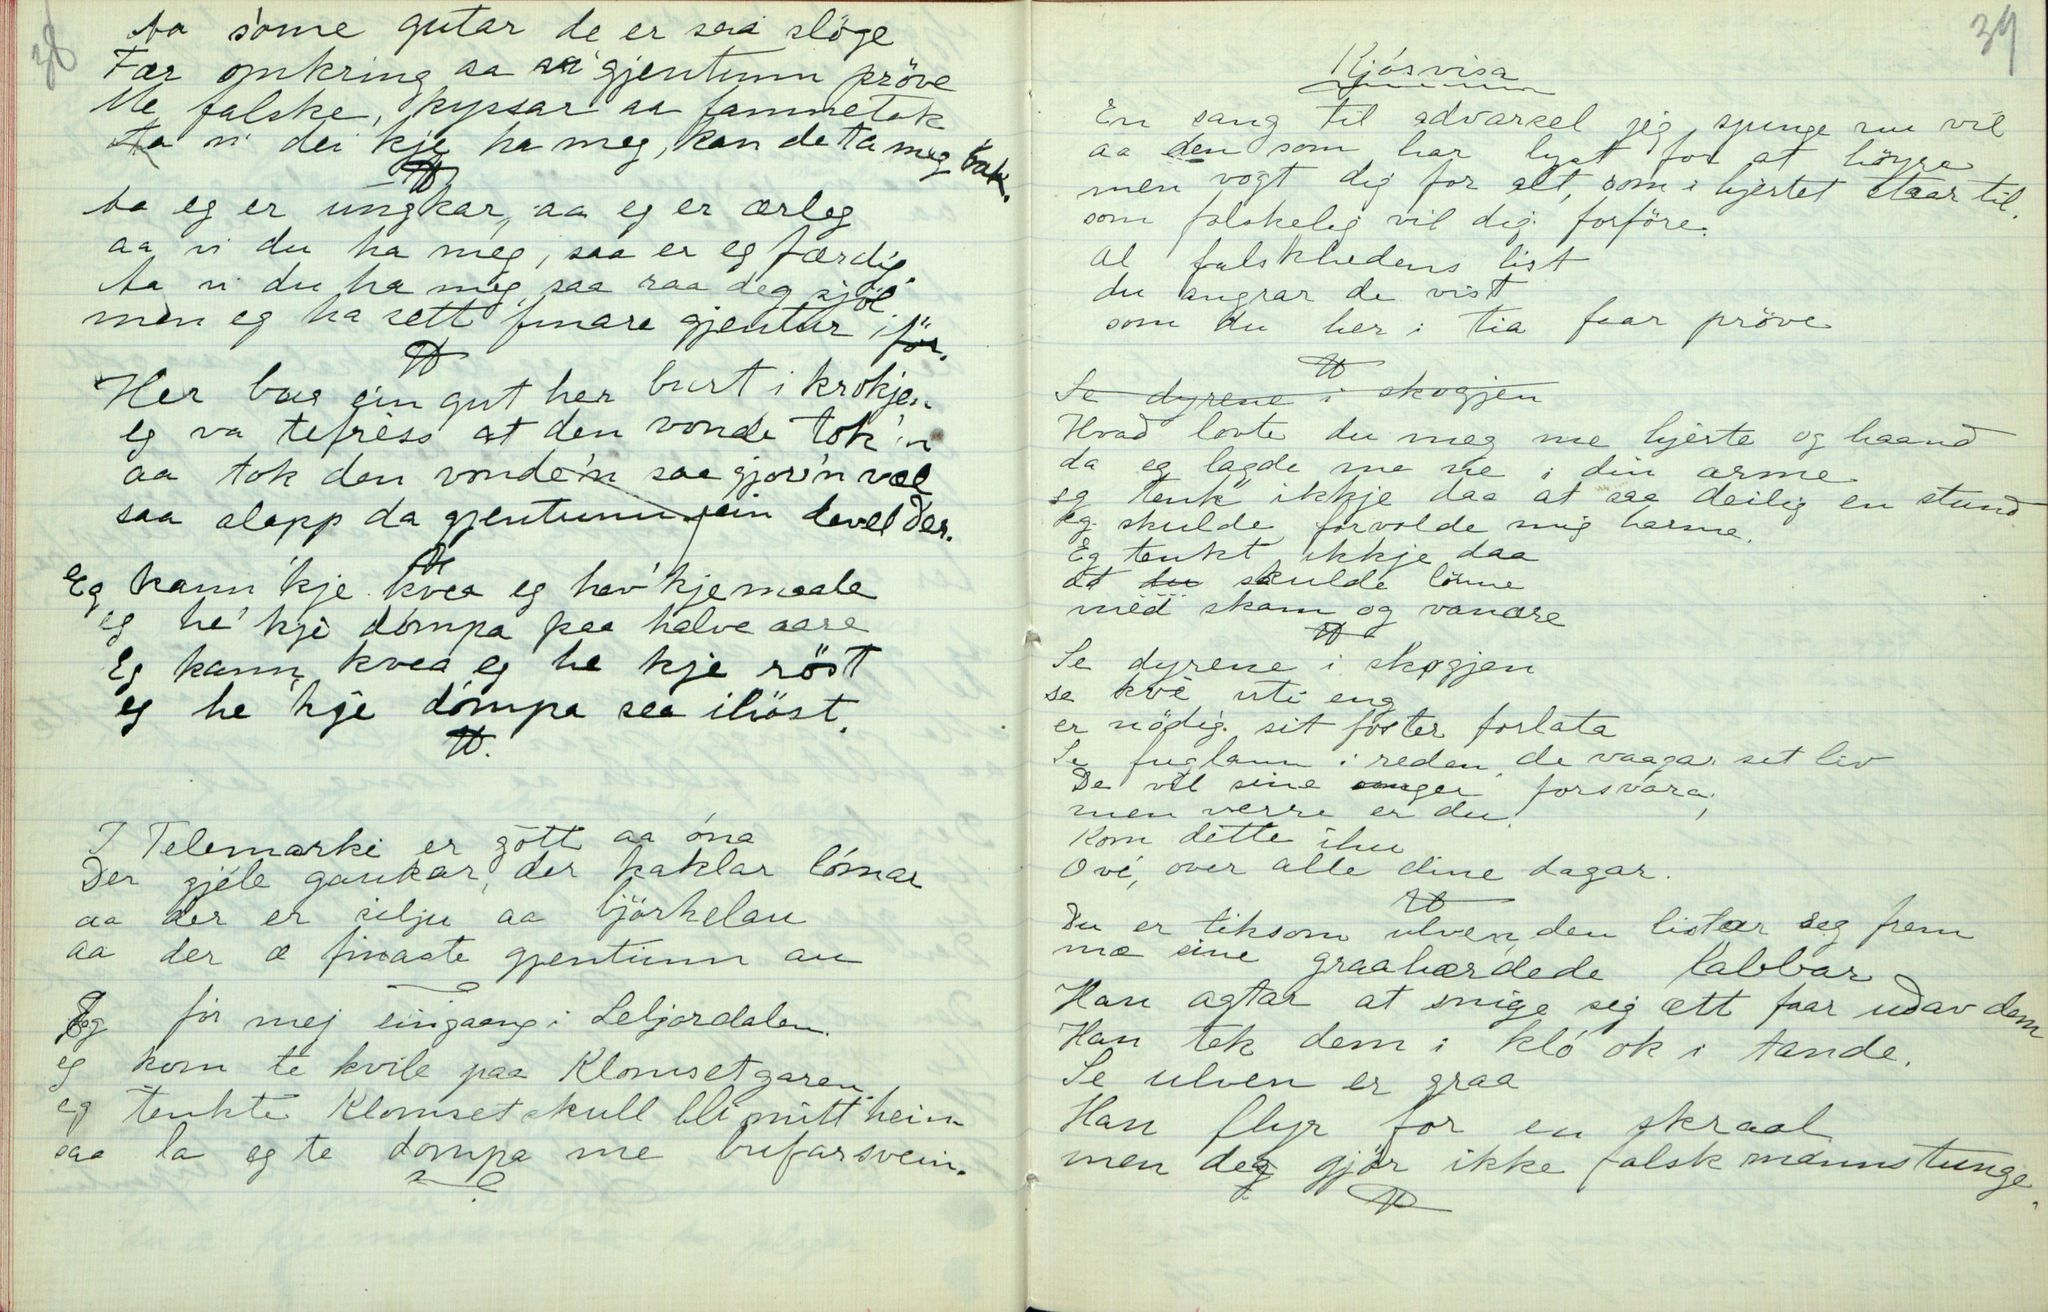 38
Aa some gutar de er saa slöge
Fær omkring aa gjentunn pröve
Me falske, kyssar aa fammetok
Aa vi dei kje ha meg, kan de ta meg bak.
Aa eg er ungkar, aa eg er ærleg
aa vi du ha meg, saa er eg færdig.
Aa vi du ha meg saa raa deg sjöl
men eg ha sett finare gjentur iför.
Her bur ein gut her burt i krokjen
eg va tefress at den vonde tok'n
aa tok den vonde'n saa gjor'n væl
saa slapp da gjentunn ein devel der.
Eg kann'kje kvea eg hav'kje maale
eg he'kje dómpa paa halve aare
Eg kann kvea eg he kje röst
eg he'kje dómpa saa ihöst.
I Telemarki er gótt aa óna
Der gjéle gaukar, der kaklar lómar
aa der er silju aa björkelau
aa der æ finaste gjentunn au
Eg fór mej eingaang i Seljordalen.
eg kom te kvile paa Klomsetgaren
eg tenkte Klomset skull bli mitt heim
saa la eg te dómpa me bufarsvein.
39
Kjósvisa
En sang til advarsel jeg sjunge nu vil
aa den som har lyst for at höyre
men vogt dig for alt, som i hjertet staar til.
som falskelig vil dig forföre.
Al falskhedens list
du angrar de vist
som du her i tia faar pröve
Se dyrene i skogjen
Hvad lovte du meg me hjerte og haand
da eg lagde me ne i din arme
eg tenk ikkje daa at saa deilig en stund
eg skulde forvolde mig harme.
Eg tenkt ikkje daa
at du skulde lönne
med skam og vanære
Se dyrene i skogjen
se kvé uti eng
er nödig sit foster forlata
Se fuglann i reden, de vaagar set liv
De vil sine unger forsvara,
men verre er du.
Kom dette ihu
Ové, over alle dine dagar.
Du er liksom ulven, den listar seg frem
mæ sine graahærdede labbar
Han agtar at snige seg ett faar udav dem
Han tek dem i kló ok i tande.
Se ulven er graa
Han flyr for en skraal
men deg gjör ikke falsk mannstunge.